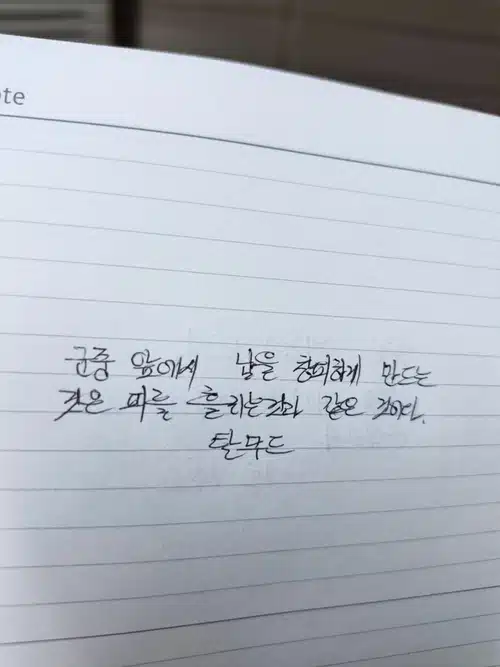 ote
군중 앞에서 남을 창피하게 만드는
것은 피를 흘리는것과 같은 것이다.
탈무드